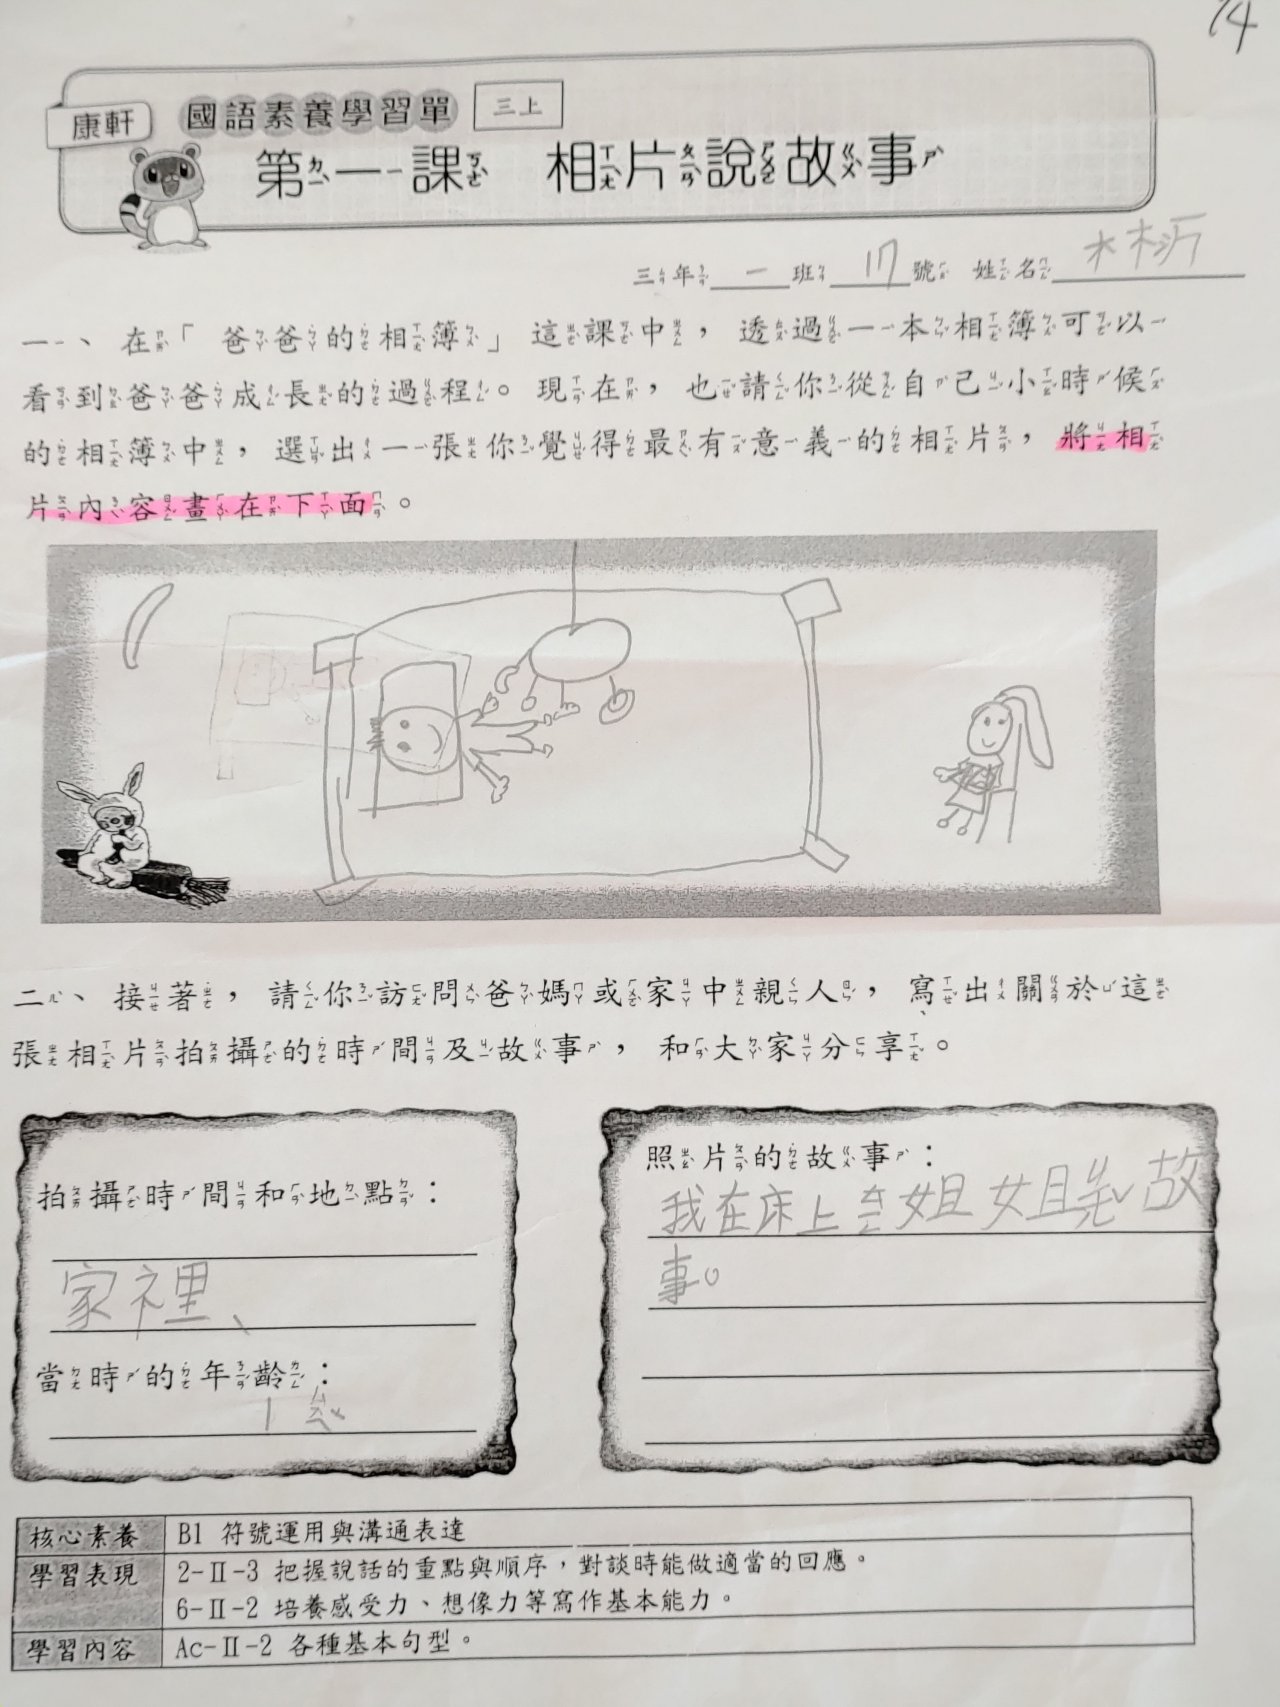 74
康軒 國語素養學習單 三上
第一課 相片說故事
三年一班17號 姓名
一、在「爸爸的相簿」這課中，透過一本相簿可以
看到爸爸成長的過程。現在，也請你從自己小時候
的相簿中，選出一張你覺得最有意義的相片，將相
片內容畫在下面。
二、接著，請你訪問爸媽或家中親人，寫出關於這
張相片拍攝的時間及故事，和大家分享。
拍攝時間和地點：
家裡、
當時的年齡：
1
照片的故事：
我在床上ㄊㄧㄥ姐姐ㄐㄧㄤˇ故
事。
核心素養 B1 符號運用與溝通表達
學習表現 2-Ⅱ-3 把握說話的重點與順序，對談時能做適當的回應。
6-Ⅱ-2 培養感受力、想像力等寫作基本能力。
學習內容 Ac-Ⅱ-2 各種基本句型。